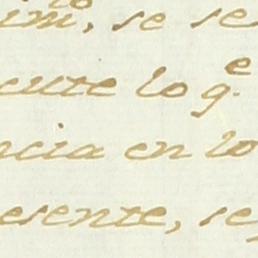 im^to, se se
cute lo q.^e
ncia en lo
esente, se